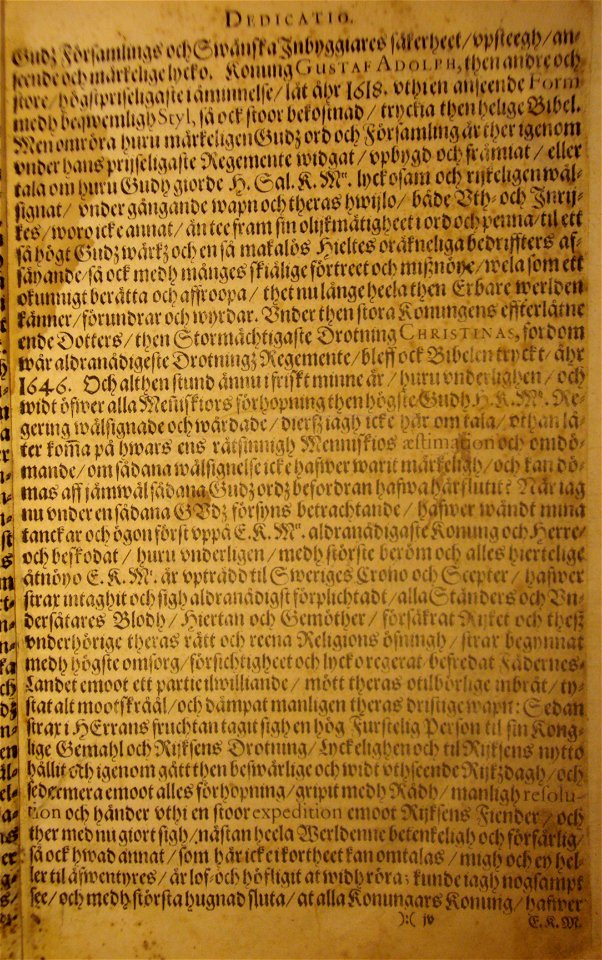 DEDICATIO.
Gudz Församlings och Swänska Inbyggiares säkerheet / vpsteegh / an-
seende och märkelige lycko. Konung GUSTAF ADOLPH, then andre och
store / högstpriseligaste i åminnelse / lät åhr 1618. vthi en anseende Form
medh beqwemligh Styl, så ock stoor bekostnad / tryckia then helige Bibel.
Men omröra huru märkeligen Gudz ord och Församling är ther igenom
vnder hans prijseligaste Regemente widgat / vpbygd och främiat / eller
tala om huru Gudh giorde H. Sal. K. Mtt. lyckosam och rijkeligen wäl-
signat / vnder gångande wapn och theras hwijlo / både Vth- och Inrij-
kes / woro icke annat / än tee fram sin olijkmätigheet i ord och penna / til ett
så högt Gudz wärkz och en så makalös Hieltes oräkneliga bedriffters af-
säyande / så ock medh mänges skiälige förtreet och mißnöye / wela som ett
okunnigt berätta och affroopa / thet nu länge heela then Erbare werlden
känner / förundrar och wyrdar. Vnder then stora Konungens effterlåtne
ende Dotters / then Stormächtigaste Drotning CHRISTINAS, fordom
wår aldranådigeste Drotningz Regemente / bleff ock Bibelen tryckt / åhr
1646. Och althenstund ännu i friskt minne är / huru vnderlighen / och
widt öfwer alla Meñiskiors förhopning then högste Gudh H. K. Mtz. Re-
gering wälsignade och wårdade / dierfz iagh icke här om tala / vthan lå-
ter kom̃a på hwars ens rätsinnigh Menniskios æstimation och omdö-
mande / om sådana wälsignelse icke hafwer warit märkeligh / och kan dö-
mas aff jämwäl sådana Gudz ordz befordran hafwa härflutit? När iag
nu vnder en sådana GUdz försyns betrachtande / hafwer wändt mina
tanckar och ögon först vppå E. K. Mtt. aldranådigaste Konung och Herre /
och beskodat / huru vnderligen / medh störste beröm och alles hiertelige
åtnöyo E. K. Mt. är vpträdd til Sweriges Crono och Scepter / hafwer
strax intaghit och sigh aldranådigst förplichtadt / alla Ständers och Vn-
dersåtares Blodh / Hiertan och Gemöther / försäkrat Ryket och theß
vnderhörige theras rätt och reena Religions öfningh / strax begynnat
medh högste omsorg / försichtigheet och lycko regerat / befredat Fädernes-
Landet emoot ett partie ilwilliande / mött theras otilbörlige inbråt / ty-
stat alt mootskrääl / och dämpat manligen theras dristige wapn: Sedan
strax i HErrans fruchtan tagit sigh en hög Furstelig Person til sin Kong-
lige Gemahl och Ryksens Drotning / Lyckelighen och til Ryksens nytto
hållit och igenom gått then beswärlige och widt vthseende Rykzdagh / och
sedermera emoot alles förhopning / gripit medh Rådh / manligh resolu-
tion och händer vthi en stoor expedition emoot Ryksens Fiender / och
ther med nu giort sigh / nästan heela Werldenne betenkeligh och förfärlig /
så ock hwad annat / som här icke i kortheet kan omtalas / migh och ey hel-
ler til äfwentyres / är lof- och höfligit at widh röra; kunde iagh nogsampt
see / och medh största hugnad sluta / at alla Konungars Konung / hafwer
):( iv E. K. M.